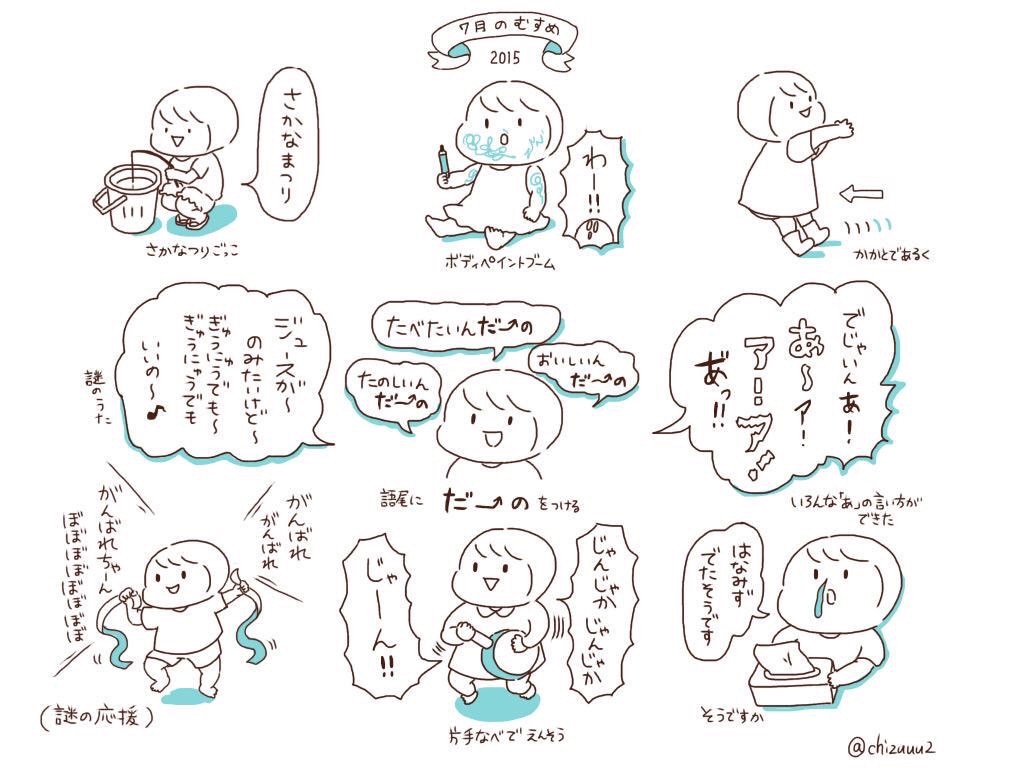 7月のむすめ
2015
さかなまつり
さかなつりごっこ
わー!!
ボディペイントブーム
かかとであるく
ジュースが～
のみたいけど～
ぎゅうにうでも～
ぎゅうにゅうでも
いいの～♪
謎のうた
たべたいんだー→の
たのしいん
だ～の
おいしいん
だ～の
語尾に だー→の をつける
でじゃいんあー!
あ～ア!
アー!!アー!!
あ゛っ!!
いろんな「あ」の言い方が
できた
がんばれ
がんばれ
がんばれちゃーん
ぼぼぼぼぼぼぼぼ
(謎の応援)
じゃんじゃかじゃんじゃか
じゃーん!!
片手なべで えんそう
はなみず
でたそうです
そうですか
@chizuuu2